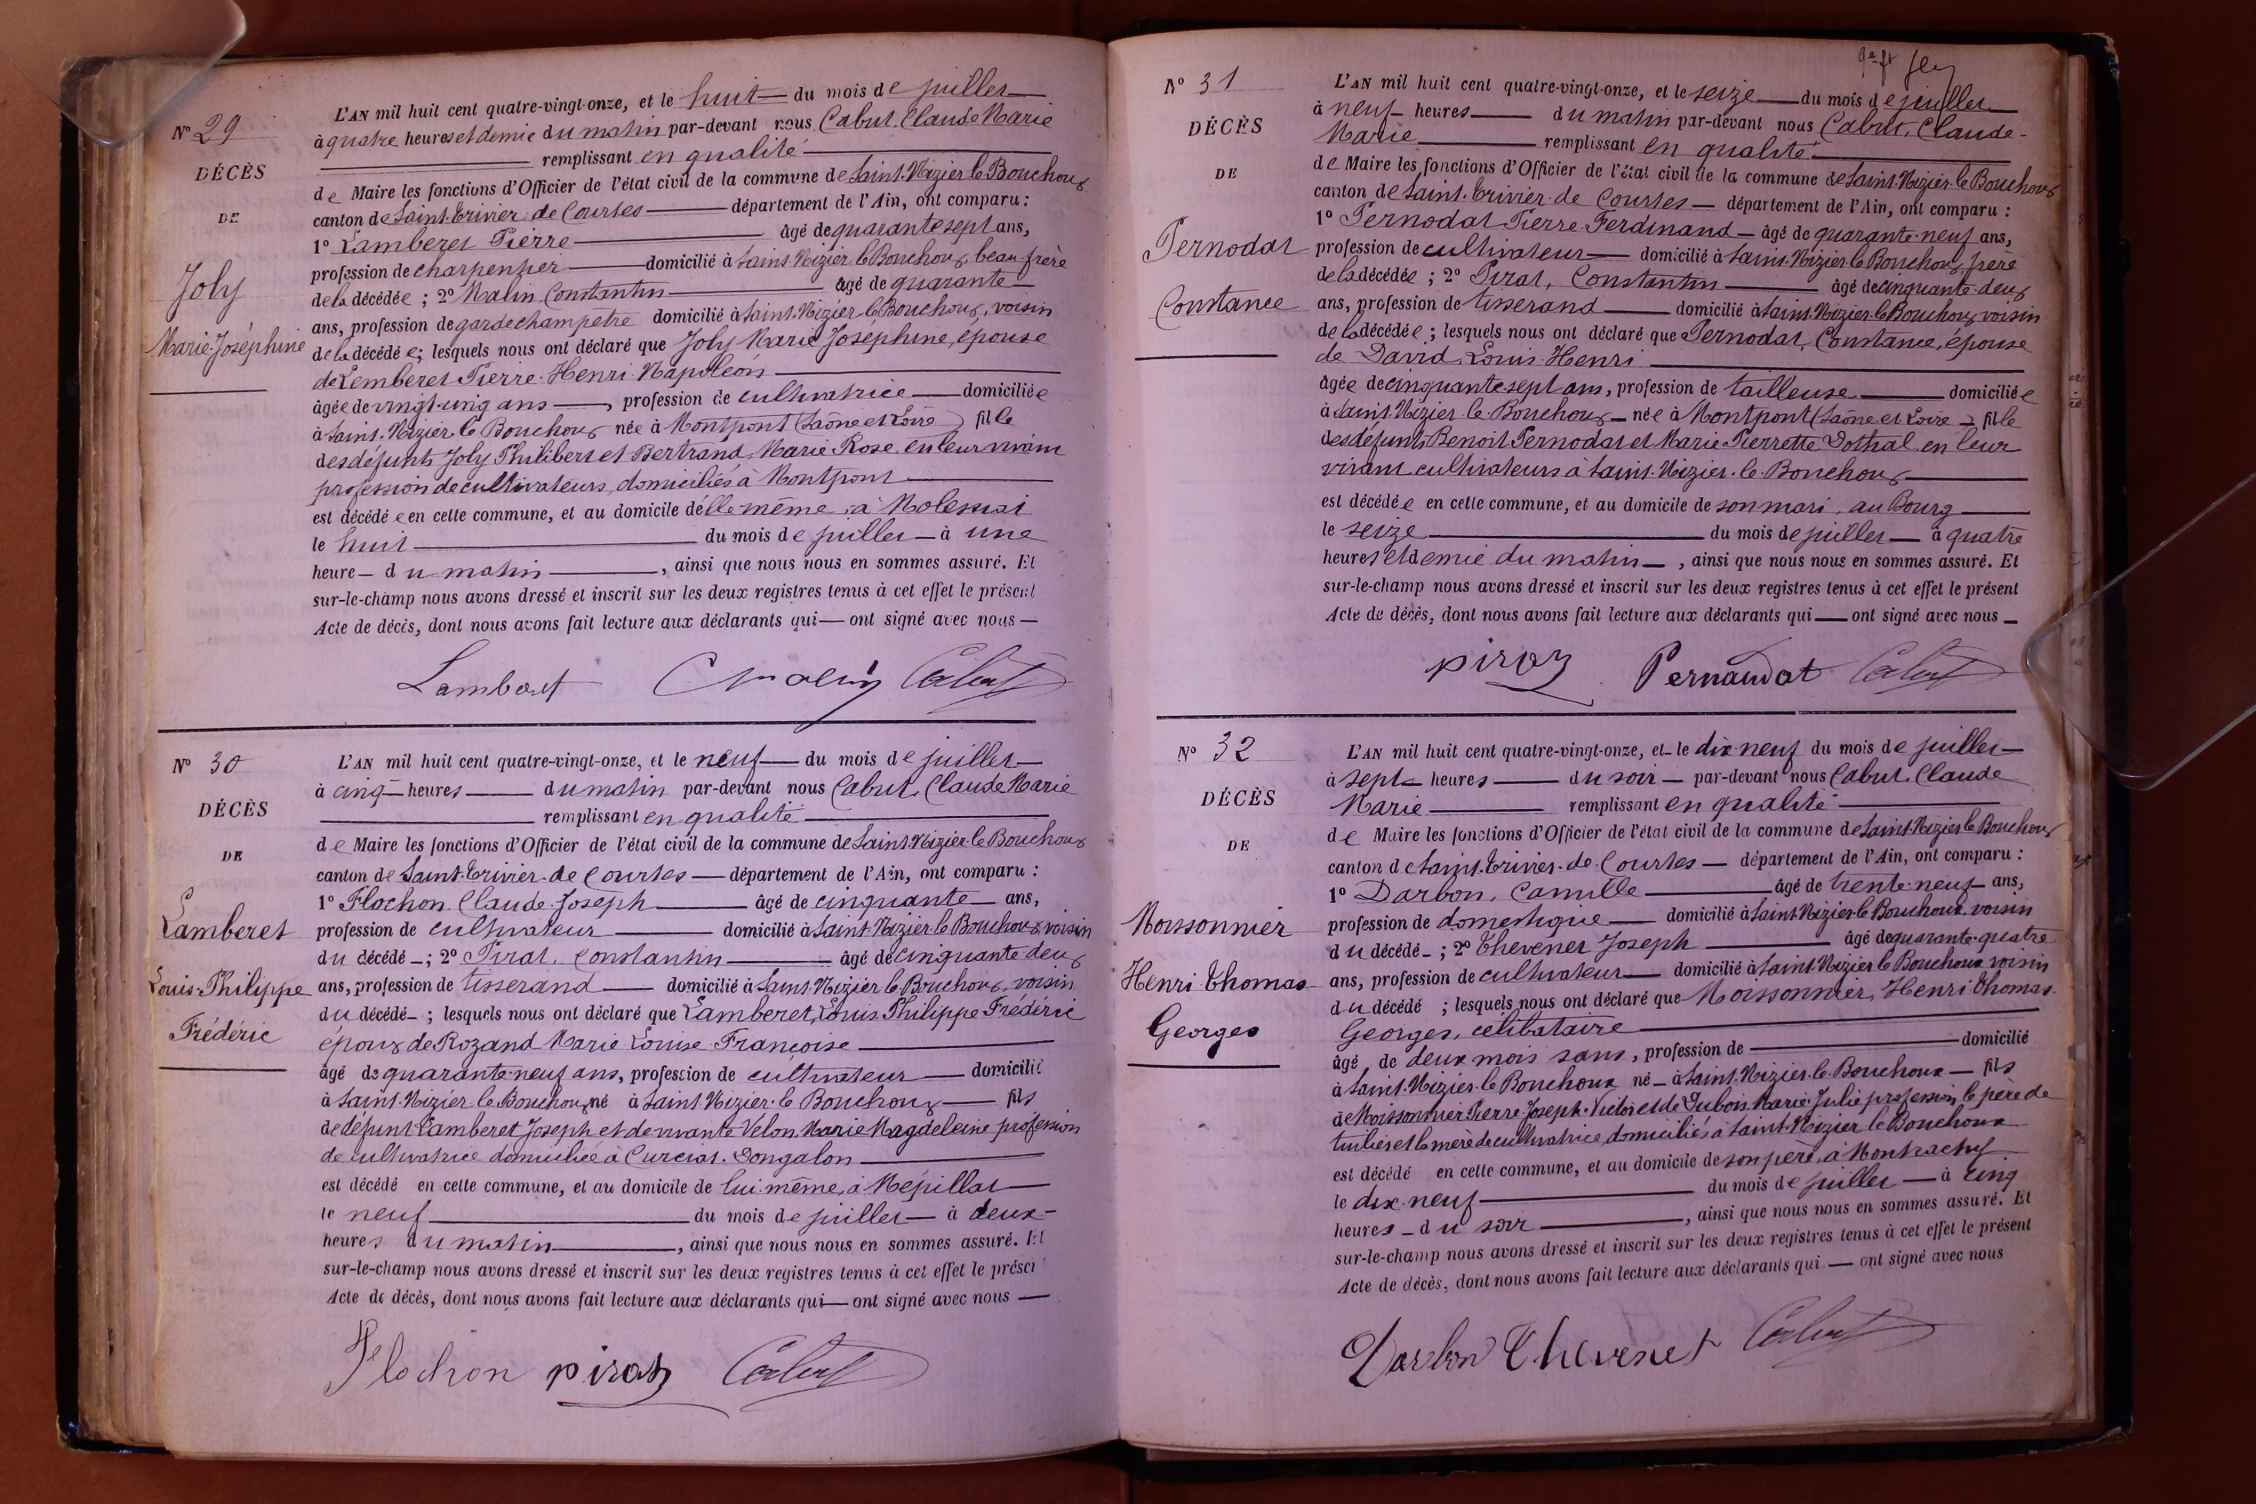 Nº 29
DÉCÈS
DE
Joly
Marie Joséphine
L'AN mil huit cent quatre-vingt-onze, et le huit du mois de juillet
à quatre heures et demie du matin par-devant nous Cabut, Claude Marie
remplissant en qualité
de Maire les fonctions d'Officier de l'état civil de la commune de Saint-Nizier-le-Bouchoux
canton de Saint-Trivier-de-Courtes département de l'Ain, ont comparu :
1º Lamberet Pierre âgé de quarante sept ans,
profession de charpentier domicilié à Saint-Nizier-le-Bouchoux, beau-frère
de la décédée ; 2º Malin Constantin âgé de quarante
ans, profession de garde champêtre domicilié à Saint-Nizier-le-Bouchoux, voisin
de la décédée ; lesquels nous ont déclaré que Joly Marie Joséphine, épouse
de Lemberet Pierre Henri Napoléon
âgée de vingt-cinq ans, profession de cultivatrice domiciliée
à Saint-Nizier-le-Bouchoux née à Montpont (Saône et Loire) fille
des défunts Joly Philibert et Bertrand, Marie Rose, en leur vivant
profession de cultivateurs, domiciliés à Montpont
est décédée en cette commune, et au domicile d'elle même, à
le huit du mois de juillet à une
heure du matin, ainsi que nous nous en sommes assuré. Et
sur-le-champ nous avons dressé et inscrit sur les deux registres tenus à cet effet le présent
Acte de décès, dont nous avons fait lecture aux déclarants qui ont signé avec nous
Lamberet C Malin Cabut
Nº 30
DÉCÈS
DE
Lamberet
Louis-Philippe
Frédéric
L'AN mil huit cent quatre-vingt-onze, et le neuf du mois de juillet
à cinq heures du matin par-devant nous Cabut, Claude Marie
remplissant en qualité
de Maire les fonctions d'Officier de l'état civil de la commune de Saint-Nizier-le-Bouchoux
canton de Saint-Trivier-de-Courtes département de l'Ain, ont comparu :
1º Flochon Claude Joseph âgé de cinquante ans,
profession de cultivateur domicilié à Saint-Nizier-le-Bouchoux, voisin
du décédé ; 2º Pirat, Constantin âgé de cinquante deux
ans, profession de tisserand domicilié à Saint-Nizier-le-Bouchoux, voisin
du décédé ; lesquels nous ont déclaré que Lamberet, Louis Philippe Frédéric
époux de Rozand Marie Louise Françoise
âgé de quarante-neuf ans, profession de cultivateur domicilié
à Saint-Nizier-le-Bouchoux né à Saint-Nizier-le-Bouchoux fils
de défunt Lamberet Joseph et de vivante Velon Marie Magdeleine profession
de cultivatrice domiciliée à Curciat-Dongalon
est décédé en cette commune, et au domicile de lui-même, à Mépillat
le neuf du mois de juillet à deux
heures du matin, ainsi que nous nous en sommes assuré. Et
sur-le-champ nous avons dressé et inscrit sur les deux registres tenus à cet effet le présen
Acte de décès, dont nous avons fait lecture aux déclarants qui ont signé avec nous
Flochon pirat Cabut
Nº 31
DÉCÈS
DE
Pernodat
Constance
L'AN mil huit cent quatre-vingt-onze, et le seize du mois de juillet
à neuf heures du matin par-devant nous Cabut, Claude-
Marie remplissant en qualité
de Maire les fonctions d'Officier de l'état civil de la commune de Saint-Nizier-le-Bouchoux
canton de Saint-Trivier-de-Courtes département de l'Ain, ont comparu :
1º Pernodat Pierre Ferdinand âgé de quarante-neuf ans,
profession de cultivateur domicilié à Saint-Nizier-le-Bouchoux, frère
de la décédée ; 2º Pirat, Constantin âgé de cinquante-deux
ans, profession de tisserand domicilié à Saint-Nizier-le-Bouchoux, voisin
de la décédée ; lesquels nous ont déclaré que Pernodat, Constance, épouse
de David, Louis Henri
âgée de cinquante-sept ans, profession de tailleuse domiciliée
à Saint-Nizier-le-Bouchoux née à Montpont (Saône et Loire) fille
des défunts Benoit Pernodat et Marie Pierrette Dothal en leur
vivant cultivateurs à Saint-Nizier-le-Bouchoux
est décédée en cette commune, et au domicile de son mari, au Bourg
le seize du mois de juillet à quatre
heures et demie du matin, ainsi que nous nous en sommes assuré. Et
sur-le-champ nous avons dressé et inscrit sur les deux registres tenus à cet effet le présent
Acte de décès, dont nous avons fait lecture aux déclarants qui ont signé avec nous
pirat Pernaudat Cabut
Nº 32
DÉCÈS
DE
Moissonnier
Henri Thomas
Georges
L'AN mil huit cent quatre-vingt-onze, et le dix-neuf du mois de juillet
à sept heures du soir par-devant nous Cabut, Claude
Marie remplissant en qualité
de Maire les fonctions d'Officier de l'état civil de la commune de Saint-Nizier-le-Bouchoux
canton de Saint-Trivier-de-Courtes département de l'Ain, ont comparu :
1º Darbon, Camille âgé de trente-neuf ans,
profession de domestique domicilié à Saint-Nizier-le-Bouchoux, voisin
du décédé ; 2º Thevenet Joseph âgé de quarante-quatre
ans, profession de cultivateur domicilié à Saint-Nizier-le-Bouchoux voisin
du décédé ; lesquels nous ont déclaré que Moissonnier, Henri Thomas
Georges, célibataire
âgé de deux mois sans, profession de domicilié
à Saint-Nizier-le-Bouchoux né à Saint-Nizier-le-Bouchoux fils
de Moissonnier Pierre Joseph Victor et de Dubois Marie Julie profession, le père de
tuilier et la mère de cultivatrice, domiciliés à Saint-Nizier-le-Bouchoux
est décédé en cette commune, et au domicile de son père, à
le dix-neuf du mois de juillet à cinq
heures du soir, ainsi que nous nous en sommes assuré. Et
sur-le-champ nous avons dressé et inscrit sur les deux registres tenus à cet effet le présent
Acte de décès, dont nous avons fait lecture aux déclarants qui ont signé avec nous
Darbon Thevenet Cabut